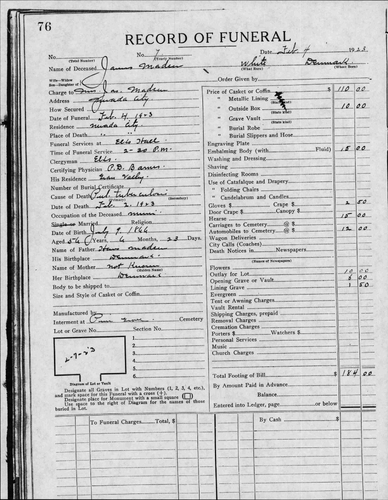 76
RECORD OF FUNERAL
No. 7 (Yearly Number) Date Feb 4 1923
Name of Deceased James Madsen White (What Race) Denmark (Where Born)
Charge to Mrs Jas. Madsen Order Given by
Address Nevada City
How Secured
Date of Funeral Feb 4, 1923
Residence Nevada City
Place of Death
Funeral Services at Elks Hall
Time of Funeral Service 2-30 P.M.
Clergyman Elks
Certifying Physician
His Residence Grass Valley
Number of Burial Certificate
Cause of Death Tuberculosis
Date of Death Feb 2, 1923
Occupation of the Deceased Miner
Single or Married Religion
Date of Birth July 9, 1866
Aged 56 Years 6 Months 23 Days
Name of Father Madsen
His Birthplace Denmark
Name of Mother Not Known (Maiden Name)
Her Birthplace Denmark
Body to be shipped to
Size and Style of Casket or Coffin
Manufactured by
Interment at Pine Grove Cemetery
Lot or Grave No. Section No.
1.
2.
3.
4.
5.
6.
7.
2-7-23
Diagram of Lot or Vault
Designate all Graves in Lot with Numbers (1, 2, 3, 4, etc.), and mark space for this Funeral with a cross (+).
Designate place for Monument with a small square
Use space to the right of Diagram for the names of those buried in Lot.
Price of Casket or Coffin $ 110 00
" Metallic Lining
" Outside Box 10 00
" Grave Vault
" Burial Robe
" Burial Slippers and Hose
Engraving Plate
Embalming Body (with Fluid) $ 15 00
Washing and Dressing
Shaving
Disinfecting Rooms
Use of Catafalque and Drapery
" Folding Chairs
" Candelabrum and Candles
Gloves $ Crape $ 2 50
Door Crape $ Canopy $
Hearse 15 00
Carriages to Cemetery @ $
Automobiles to Cemetery @ $ 12 00
Wagon Deliveries @ $
City Calls (Coaches) @ $
Death Notices in Newspapers
Flowers
Outlay for Lot 10 00
Opening Grave or Vault 8 00
Lining Grave 1 50
Evergreen
Tent or Awning Charges
Vault Rental
Shipping Charges, prepaid
Removal Charges
Cremation Charges
Porters $ Watchers $
Personal Services
Music
Church Charges
Total Footing of Bill $ 184 00
By Amount Paid in Advance
Balance
Entered into Ledger, page or below
To Funeral Charges. Total, $ By Cash $